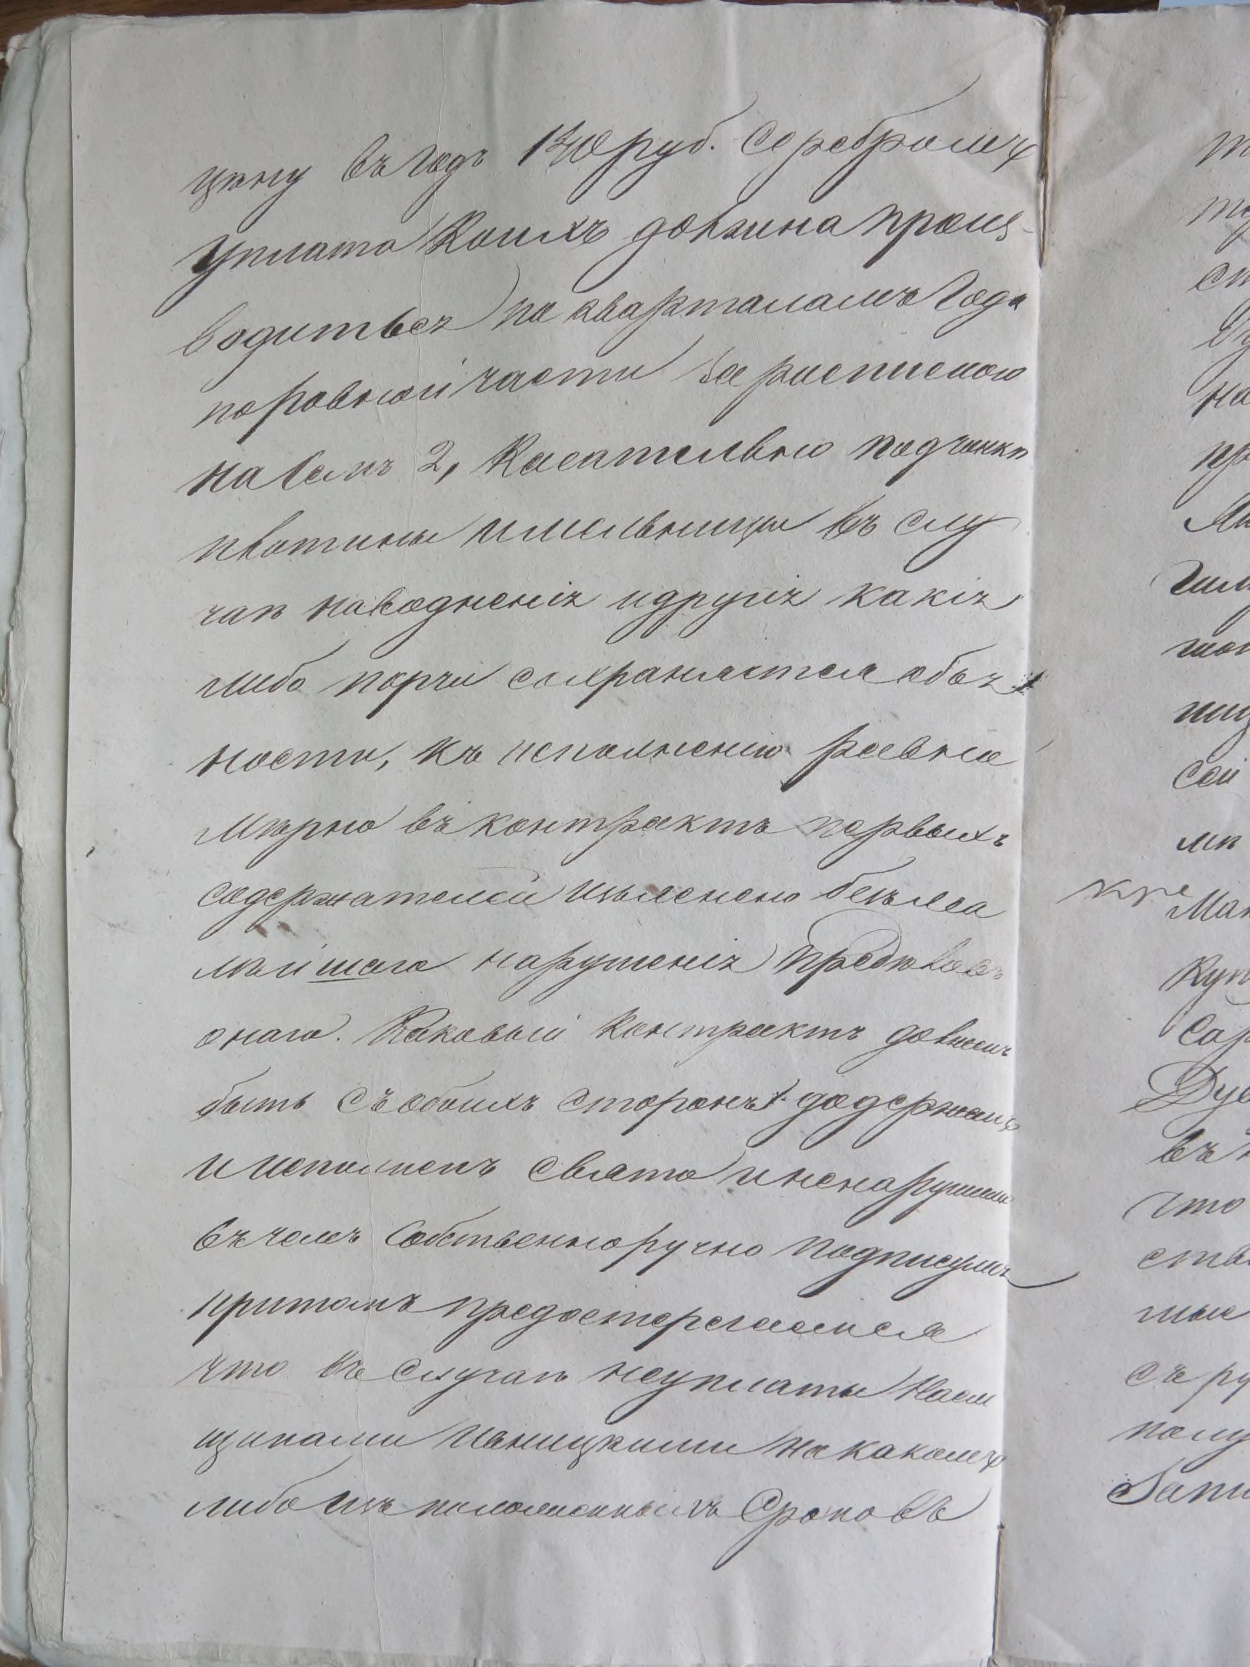 цену въ годъ 130 руб. Серебромъ
уплата коихъ должна произ-
водиться по кварталамъ года
поровной части за роспискою
на семъ 2, Касательно подчинки
плотины и мельницы въ слу
чаѣ наводненія и другія какія
либо порчи сохраняется обяз
ность, къ исполненію равно
мѣрно въ контрактѣ первыхъ
содержателей изъяснено безъ ма
лѣйшаго нарушенія
онаго. Каковый контрактъ долженъ
быть съ обоихъ сторонъ додержанъ
и исполненъ свято и ненарушимо
въ чемъ собственноручно подписуемъ
притомъ предостерегаемся
что въ случаѣ неуплаты наем
щиками на какомъ
либо изъ положенныхъ сроковъ